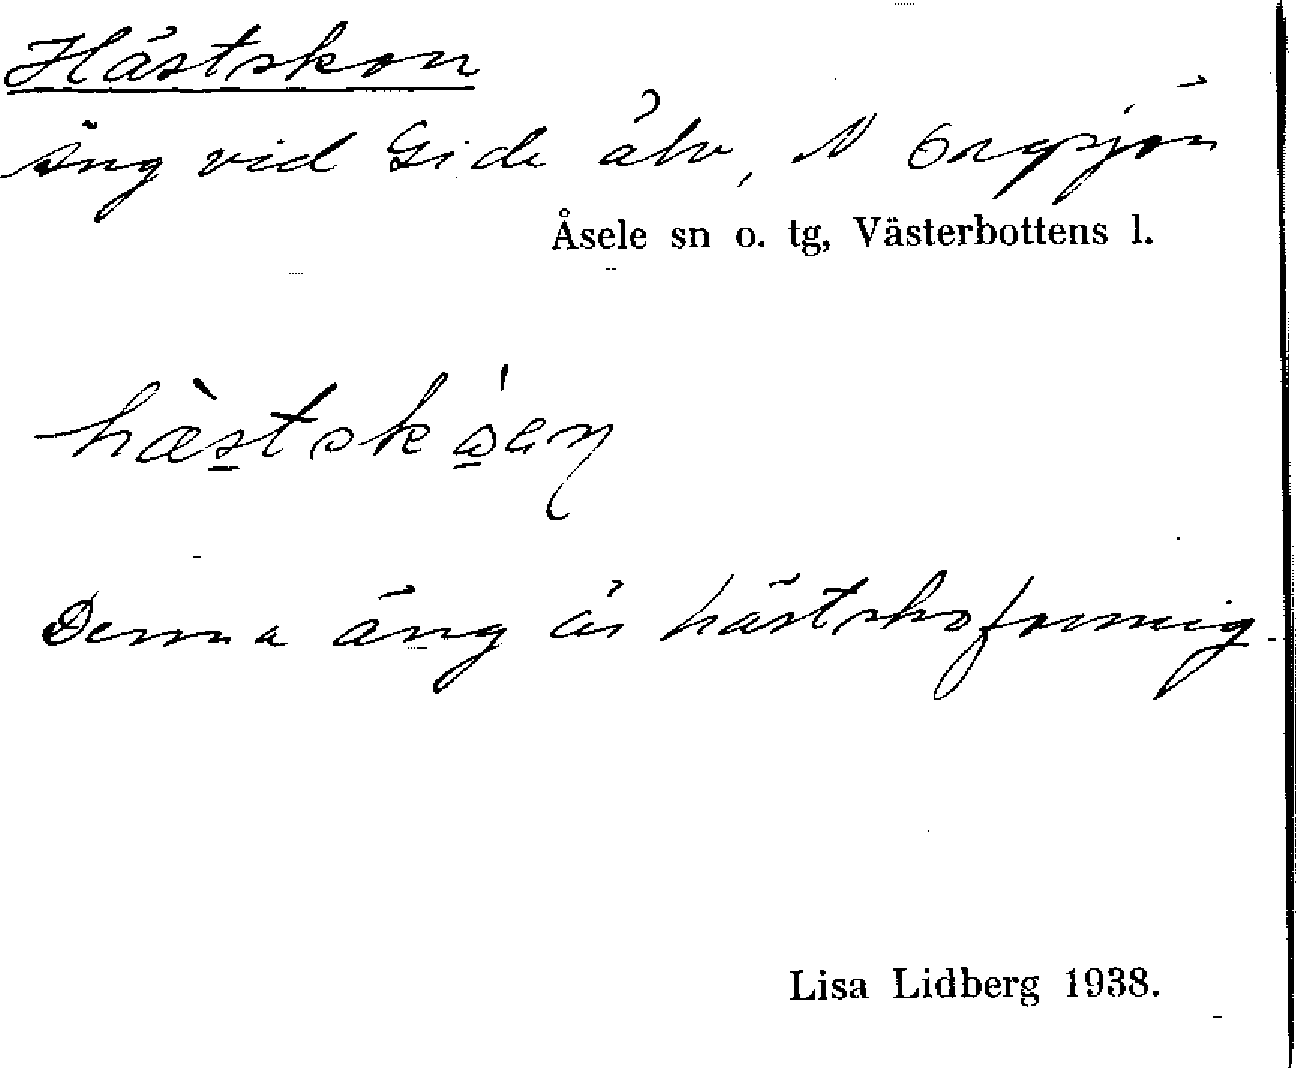 Hästskon
äng vid Gide älv, N Orgsjön
Åsele sn o. tg, Västerbottens l.
Denna äng är hästskoformig.
Lisa Lidberg 1938.